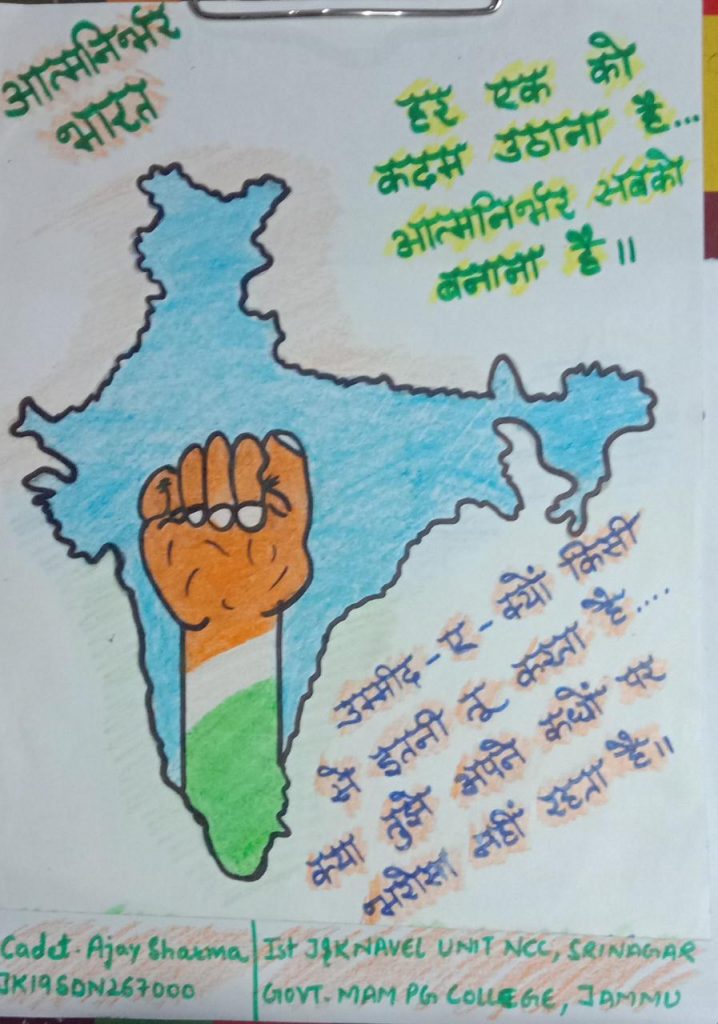 आत्मनिर्भर
भारत
हर एक को
कदम उठाना है...
आत्मनिर्भर सबको
बनाना है॥
उम्मीद-ए-क्यों किसी
से इतनी तू करता है....
क्या तुझे अपने कंधों पर
भरोसा नहीं रहता है॥
Cadet. Ajay Sharma
JK19SDN267000
Ist J&K NAVEL UNIT NCC, SRINAGAR
GOVT. MAM PG COLLEGE, JAMMU